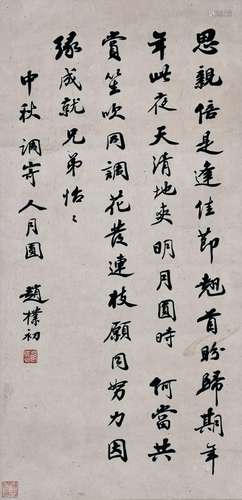 思親倍是逢佳節翹首盼歸期年
年此夜天清地爽明月圓時 何當共
賞笙吹同調花發連枝願同努力因
緣成就兄弟怡〻
中秋 調寄人月圓 趙樸初